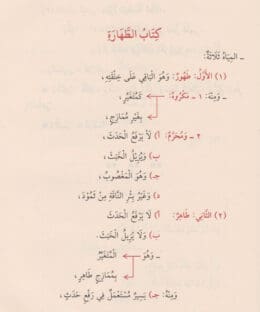 كِتَابُ الطَّهَارَةِ
ـ المِيَاهُ ثَلَاثَةٌ:
(١) الأَوَّلُ: طَهُورٌ: وَهُوَ البَاقِي عَلَى خِلْقَتِهِ،
ـ وَمِنْهُ: ١ ـ مَكْرُوهٌ: كَمُتَغَيِّرٍ،
بِغَيْرِ مُمَازِجٍ،
٢ ـ وَمُحَرَّمٌ: أ) لَا يَرْفَعُ الحَدَثَ،
ب) وَيُزِيلُ الخَبَثَ،
جـ) وَهُوَ المَغْصُوبُ،
د) وَغَيْرُ بِئْرِ النَّاقَةِ مِنْ ثَمُودَ،
(٢) الثَّانِي: طَاهِرٌ: أ) لَا يَرْفَعُ الحَدَثَ
ب) وَلَا يُزِيلُ الخَبَثَ.
ـ وَهُوَ المُتَغَيِّرُ
بِمُمَازِجٍ طَاهِرٍ،
وَمِنْهُ: جـ) يَسِيرٌ مُسْتَعْمَلٌ فِي رَفْعِ حَدَثٍ،